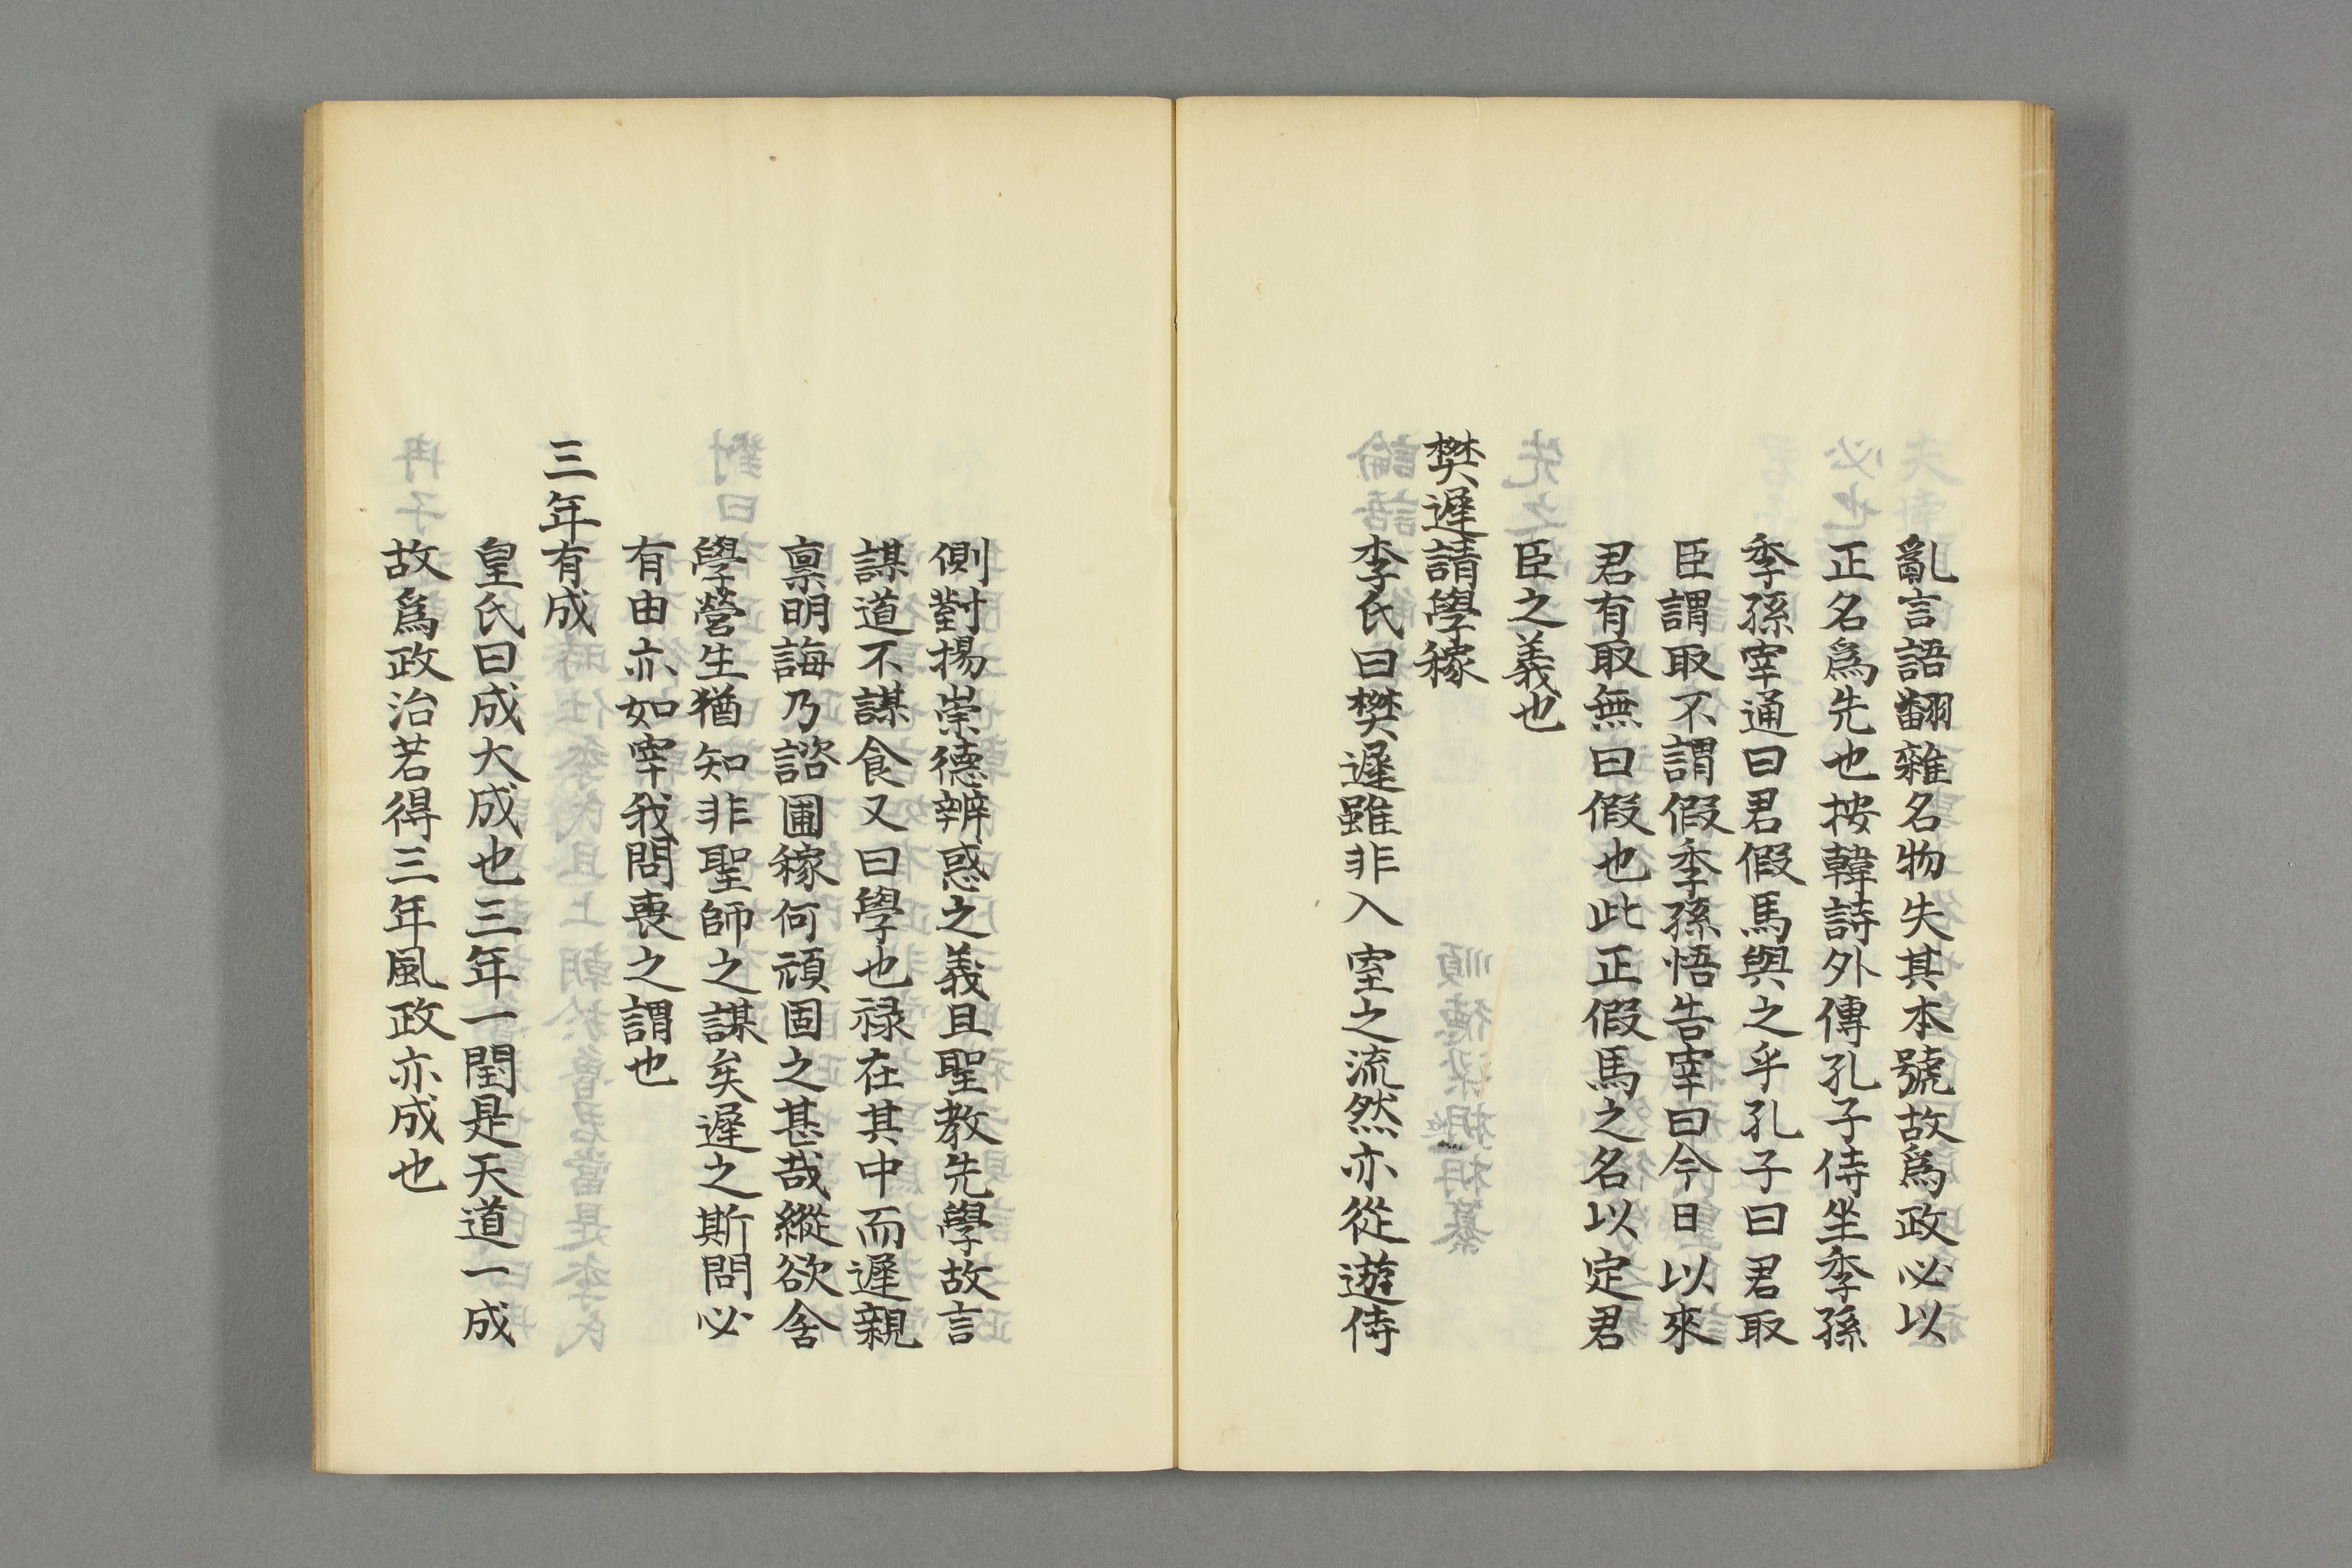 亂言語翻雜名物失其本號故爲政必以
正名爲先也按韓詩外傳孔子侍坐季孫
季孫宰通曰君假馬與之乎孔子曰君取
臣謂取不謂假季孫悟告宰曰今日以來
君有取無曰假也此正假馬之名以定君
臣之義也
樊遲請學稼
李氏曰樊遲雖非入室之流然亦從遊侍
側對揚崇德辨惑之義且聖教先學故言
謀道不謀食又曰學也禄在其中而遲親
禀明誨乃諮圃稼何頑固之甚哉縱欲舍
學營生猶知非聖師之謀矣遲之斯問必
有由亦如宰我問喪之謂也
三年有成
皇氏曰成大成也三年一閏是天道一成
故爲政治若得三年風政亦成也